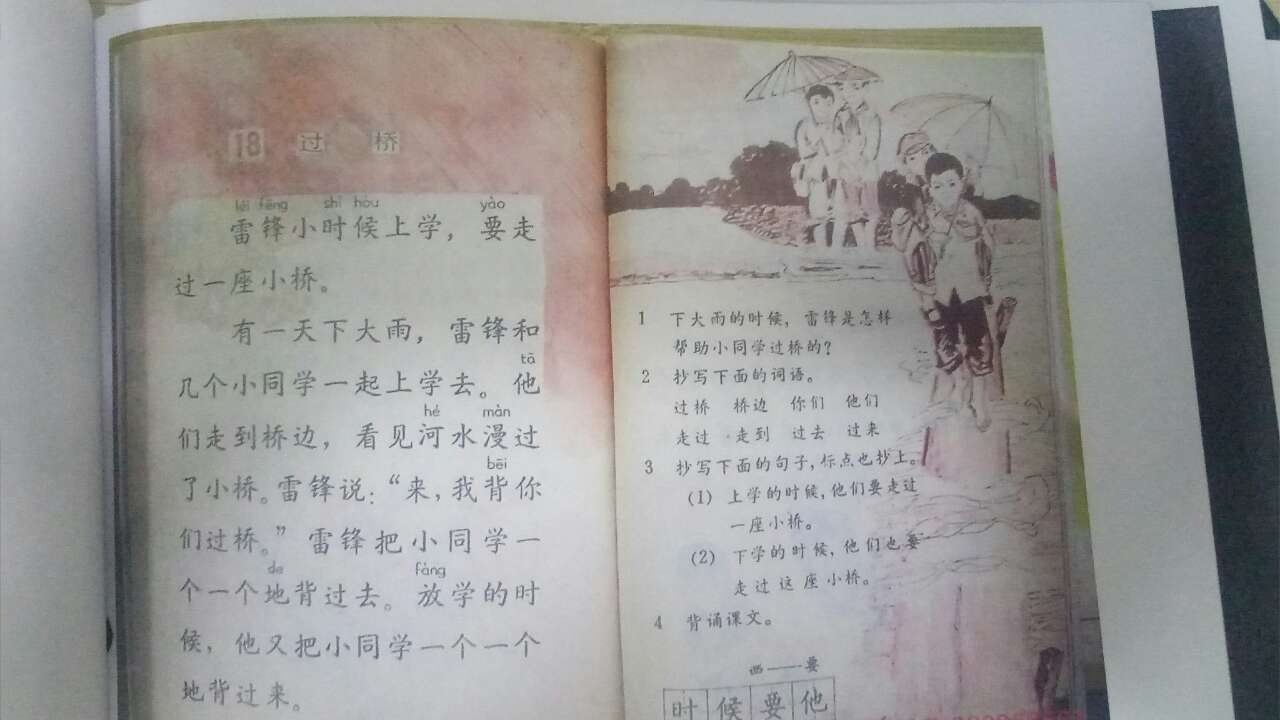 18 过桥
léi fēng shí hou yào
雷锋小时候上学，要走
过一座小桥。
有一天下大雨，雷锋和
tā
几个小同学一起上学去。他
hé màn
们走到桥边，看见河水漫过
bēi
了小桥。雷锋说：“来，我背你
们过桥。”雷锋把小同学一
de fàng
个一个地背过去。放学的时
候，他又把小同学一个一个
地背过来。
1 下大雨的时候，雷锋是怎样
帮助小同学过桥的？
2 抄写下面的词语。
过桥 桥边 你们 他们
走过 走到 过去 过来
3 抄写下面的句子，标点也抄上。
(1) 上学的时候，他们要走过
一座小桥。
(2) 下学的时候，他们也要
走过这座小桥。
4 背诵课文。
西——要
时候要他